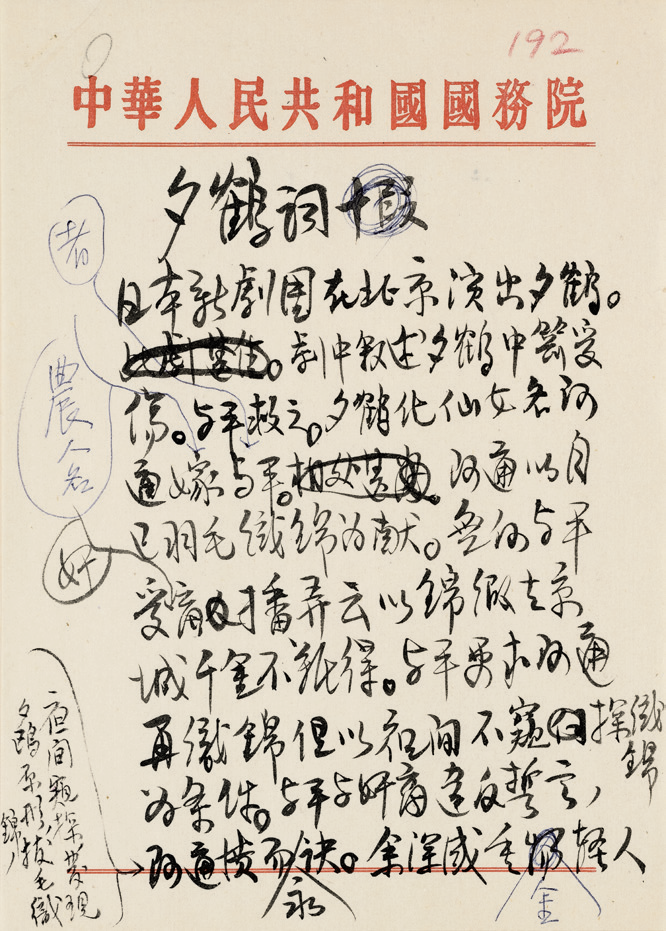 192
中華人民共和國國務院
夕鶴詞
者
農人名
奸
日本新劇團在北京演出夕鶴。
劇中叙述夕鶴中箭受
傷。与平救之。夕鶴化仙女名阿
通嫁与平。阿通以自
己羽毛織錦为献。無何与平
受商播弄云以錦緞去京
城千金不難得。与平要求阿通
再織錦但以夜间不窺探織
錦
为条件。与平与奸商違反誓言,
阿通憤而诀。余深感重輕人
永
金
夜间窺探發現
夕鶴原形拔毛織
錦,